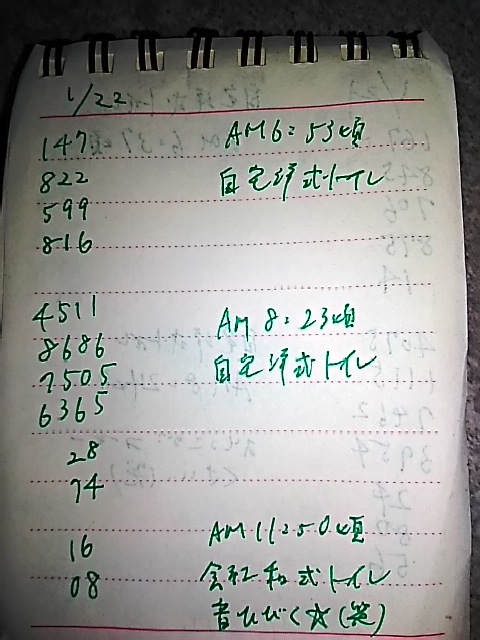 1/22
147 AM6:53頃
822 自宅洋式トイレ
599
816
4511 AM8:23頃
8686 自宅洋式トイレ
7505
6365
28
74
16 AM11:50頃
08 会社和式トイレ
音ひびく☆(笑)